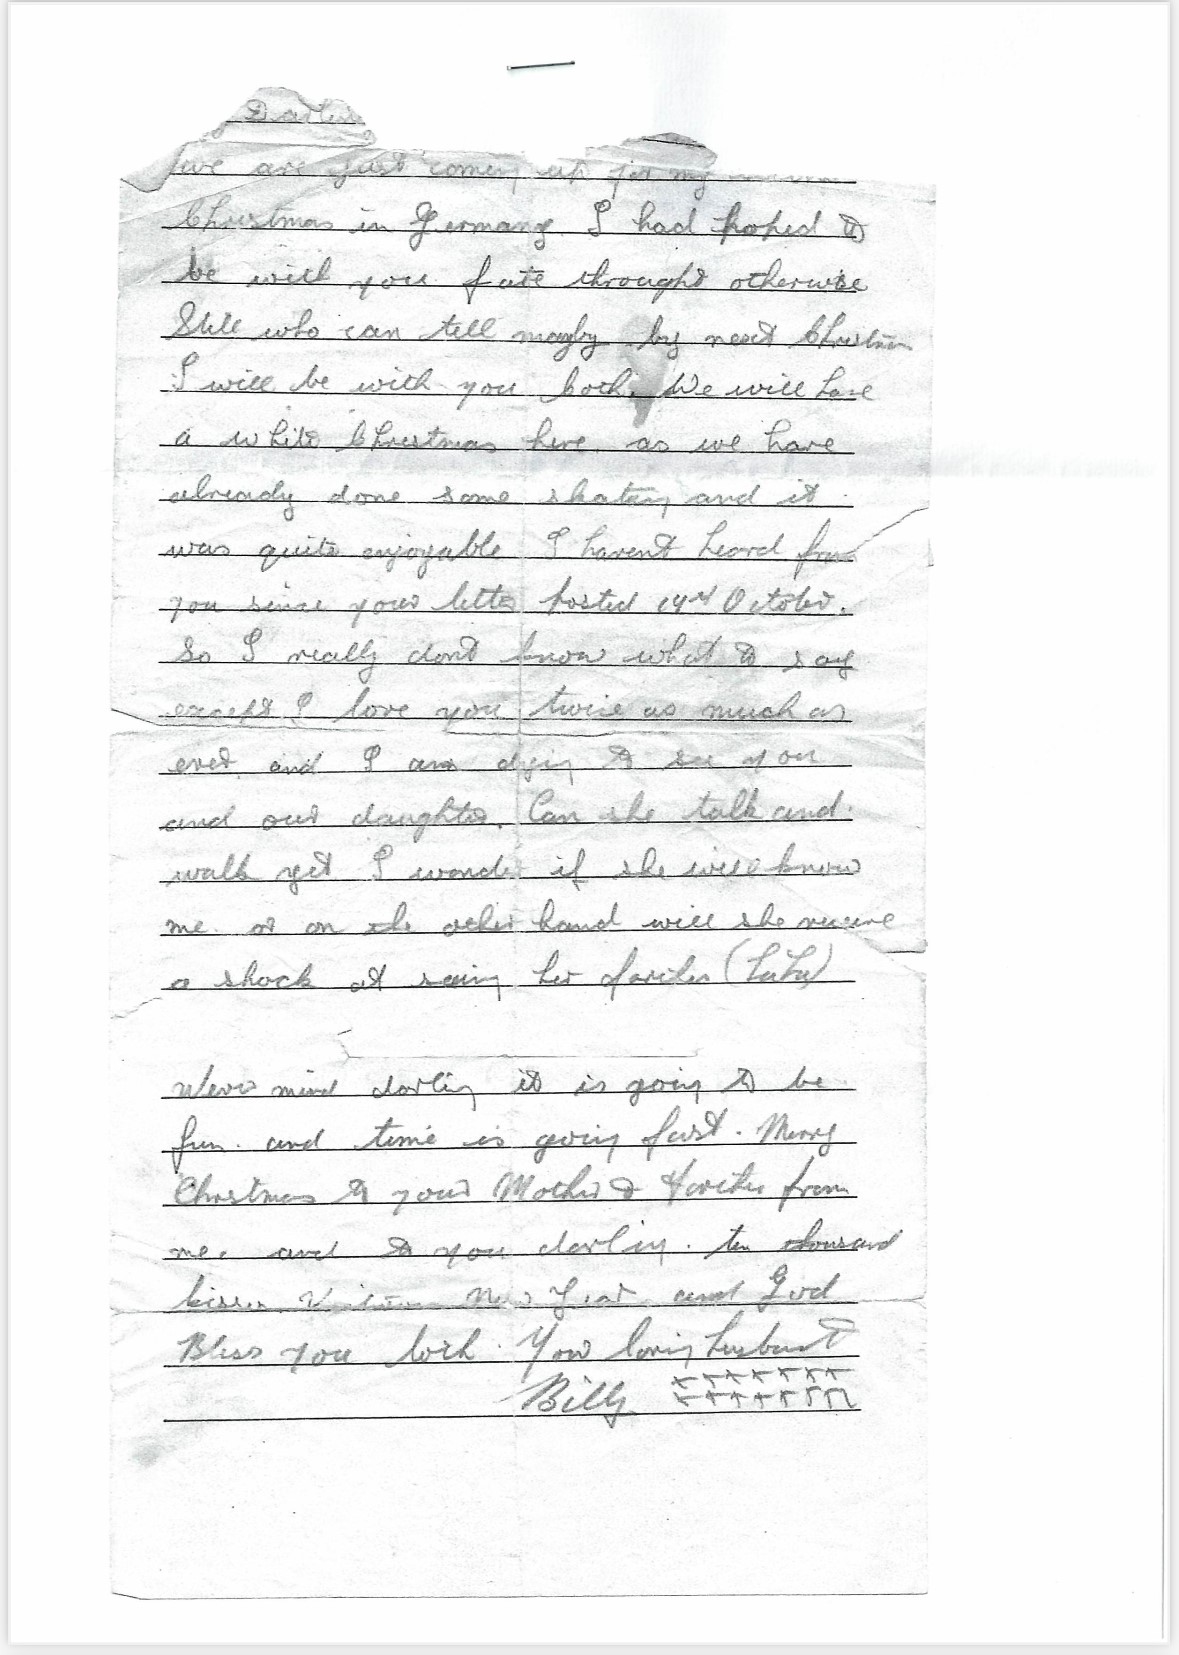 Darlin
we are just coming up for my
Christmas in Germany I had hoped to
be with you. fate throught otherwise
Still who can tell mayby by next Christmas
I will be with you both. We will have
a white Christmas here. as we have
already done some skating and it
was quite enjoyable I havent heard from
you since your letter posted October.
So I really dont know what to say
except I love you twice as much as
ever and I am dying to see you
and our daughter. Can she talk and
walk yet I wonder if she will know
me. or on the other hand will she receive
a shock at seeing her farther (haha)
Never mind darling it is going to be
fun. and time is going fast. Merry
Christmas to your Mother & Farther from
me. and to you darling. ten thousand
kisses. New Year and God
Bless you both. Your loving husband
Billy